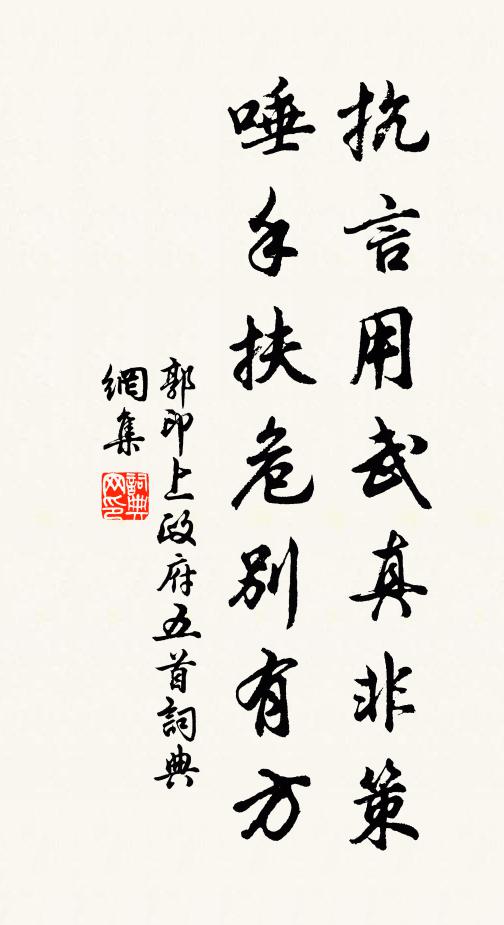 抗言用武真非策
唾手扶危别有方
郭印上政府五首詞典
網集
詞典
网印